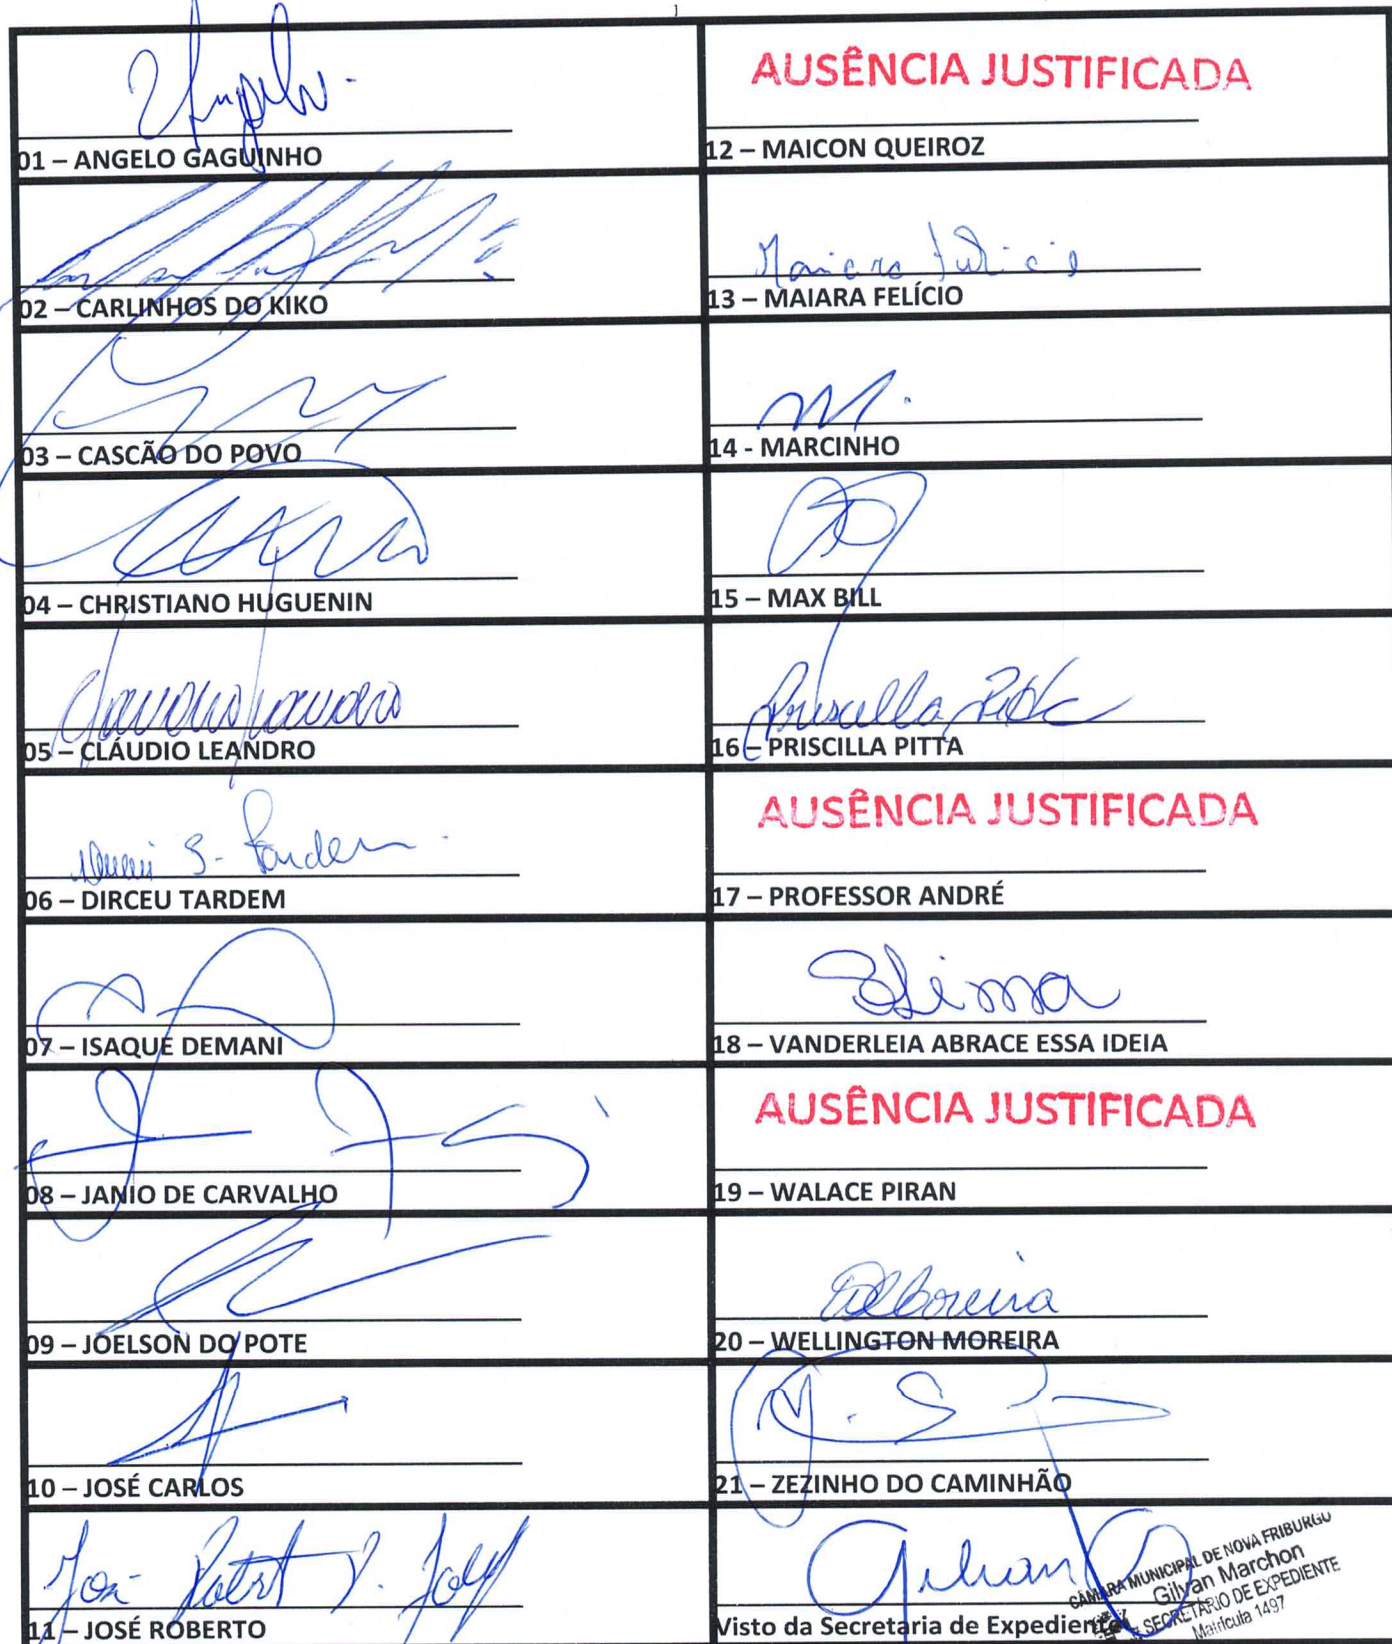 Angelo
01 – ANGELO GAGUINHO
02 – CARLINHOS DO KIKO
03 – CASCÃO DO POVO
04 – CHRISTIANO HUGUENIN
05 – CLÁUDIO LEANDRO
06 – DIRCEU TARDEM
07 – ISAQUE DEMANI
08 – JANIO DE CARVALHO
09 – JOELSON DO POTE
10 – JOSÉ CARLOS
José Robert
11 – JOSÉ ROBERTO
AUSÊNCIA JUSTIFICADA
12 – MAICON QUEIROZ
Maiara Felício
13 – MAIARA FELÍCIO
M.
14 - MARCINHO
15 – MAX BILL
Priscilla Pitta
16 – PRISCILLA PITTA
AUSÊNCIA JUSTIFICADA
17 – PROFESSOR ANDRÉ
18 – VANDERLEIA ABRACE ESSA IDEIA
AUSÊNCIA JUSTIFICADA
19 – WALACE PIRAN
20 – WELLINGTON MOREIRA
21 – ZEZINHO DO CAMINHÃO
Gilvan
Visto da Secretaria de Expediente
CÂMARA MUNICIPAL DE NOVA FRIBURGO
Gilvan Marchon
SECRETÁRIO DE EXPEDIENTE
Matrícula 1497